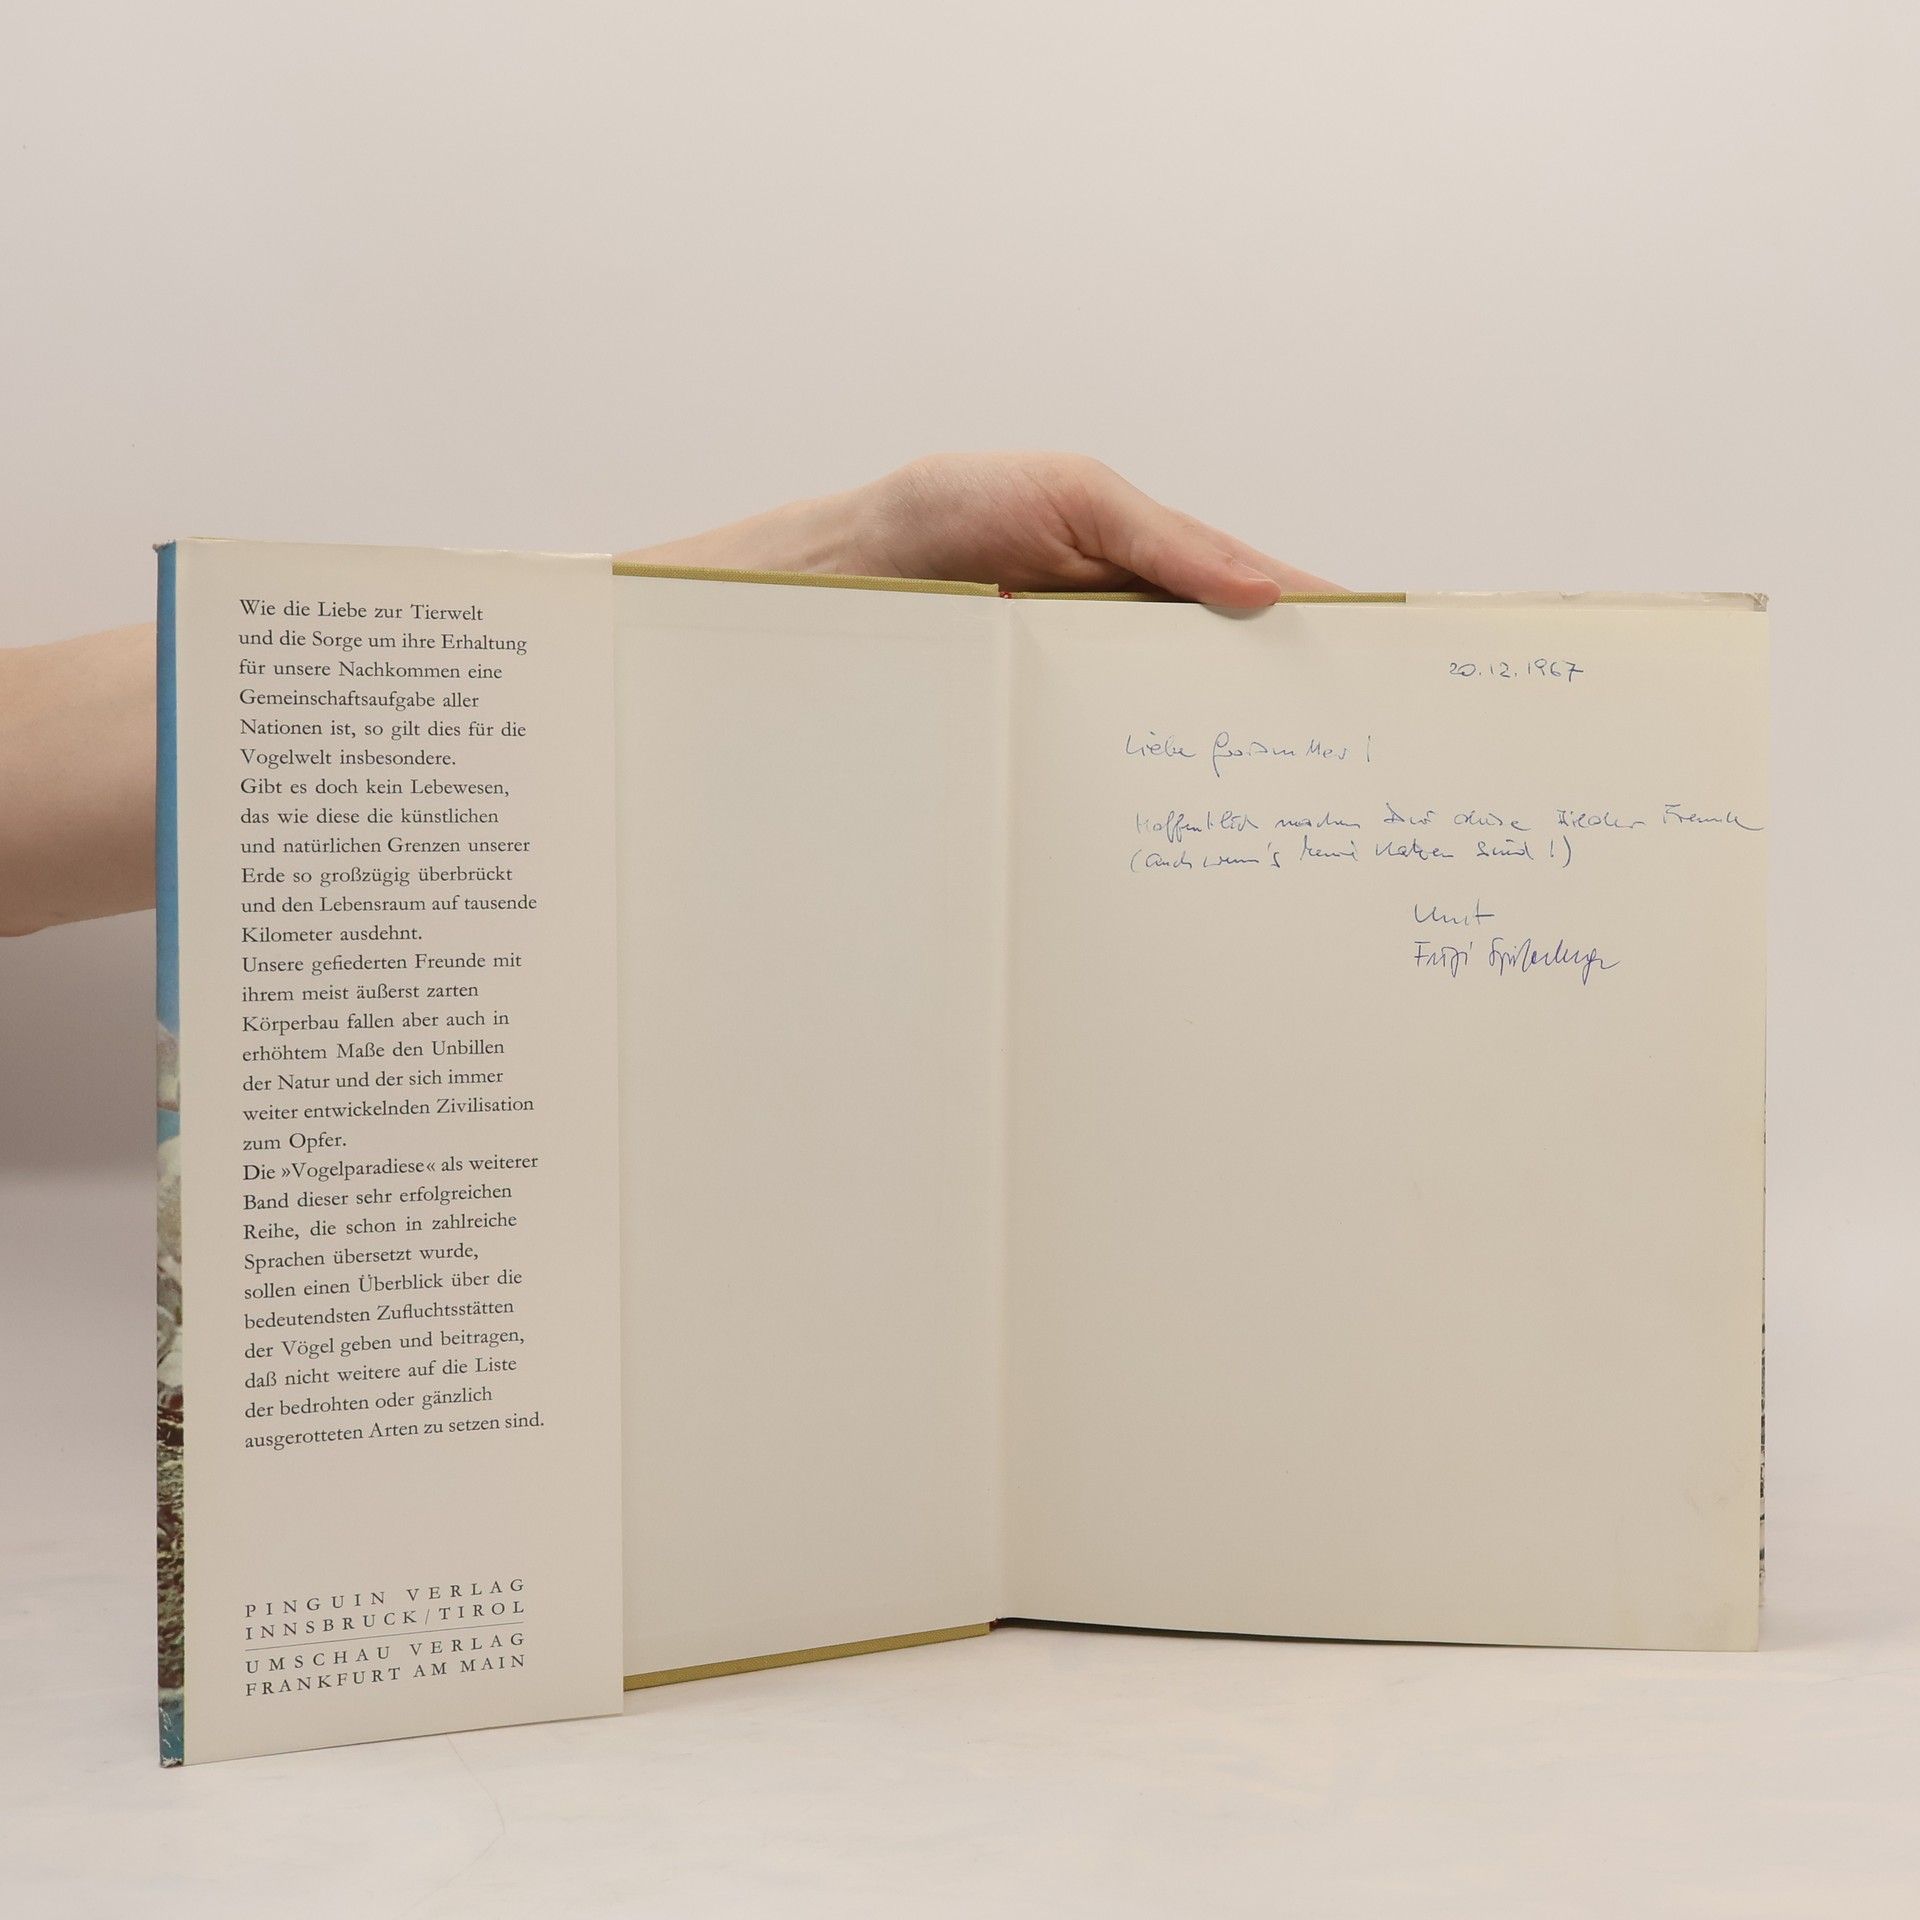 Wie die Liebe zur Tierwelt
und die Sorge um ihre Erhaltung
für unsere Nachkommen eine
Gemeinschaftsaufgabe aller
Nationen ist, so gilt dies für die
Vogelwelt insbesondere.
Gibt es doch kein Lebewesen,
das wie diese die künstlichen
und natürlichen Grenzen unserer
Erde so großzügig überbrückt
und den Lebensraum auf tausende
Kilometer ausdehnt.
Unsere gefiederten Freunde mit
ihrem meist äußerst zarten
Körperbau fallen aber auch in
erhöhtem Maße den Unbillen
der Natur und der sich immer
weiter entwickelnden Zivilisation
zum Opfer.
Die »Vogelparadiese« als weiterer
Band dieser sehr erfolgreichen
Reihe, die schon in zahlreiche
Sprachen übersetzt wurde,
sollen einen Überblick über die
bedeutendsten Zufluchtsstätten
der Vögel geben und beitragen,
daß nicht weitere auf die Liste
der bedrohten oder gänzlich
ausgerotteten Arten zu setzen sind.
PINGUIN VERLAG
INNSBRUCK/TIROL
UMSCHAU VERLAG
FRANKFURT AM MAIN
20.12.1967
Liebe Großmutter!
Hoffentlich machen Dir diese Bilder Freude
(auch wenn's keine Katzen sind!)